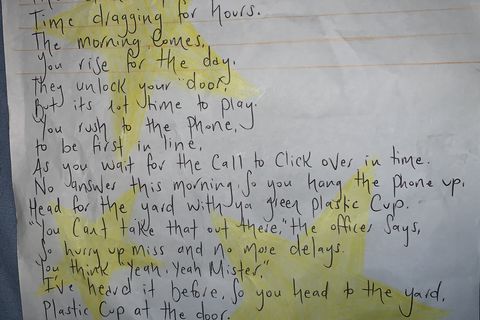 Time dragging for hours.
The morning Comes,
you rise for the day.
They unlock your door,
But its not time to play.
You rush to the Phone,
to be first in line,
As you wait for the Call to Click over in time.
No answer this morning, So you hang the Phone up,
Head for the yard with ya green Plastic Cup.
"You Cant take that out there," the officer Says,
So hurry up miss and no more delays.
You think "Yeah, Yeah Mister,"
I've heard it before, So you head to the yard,
Plastic Cup at the door.